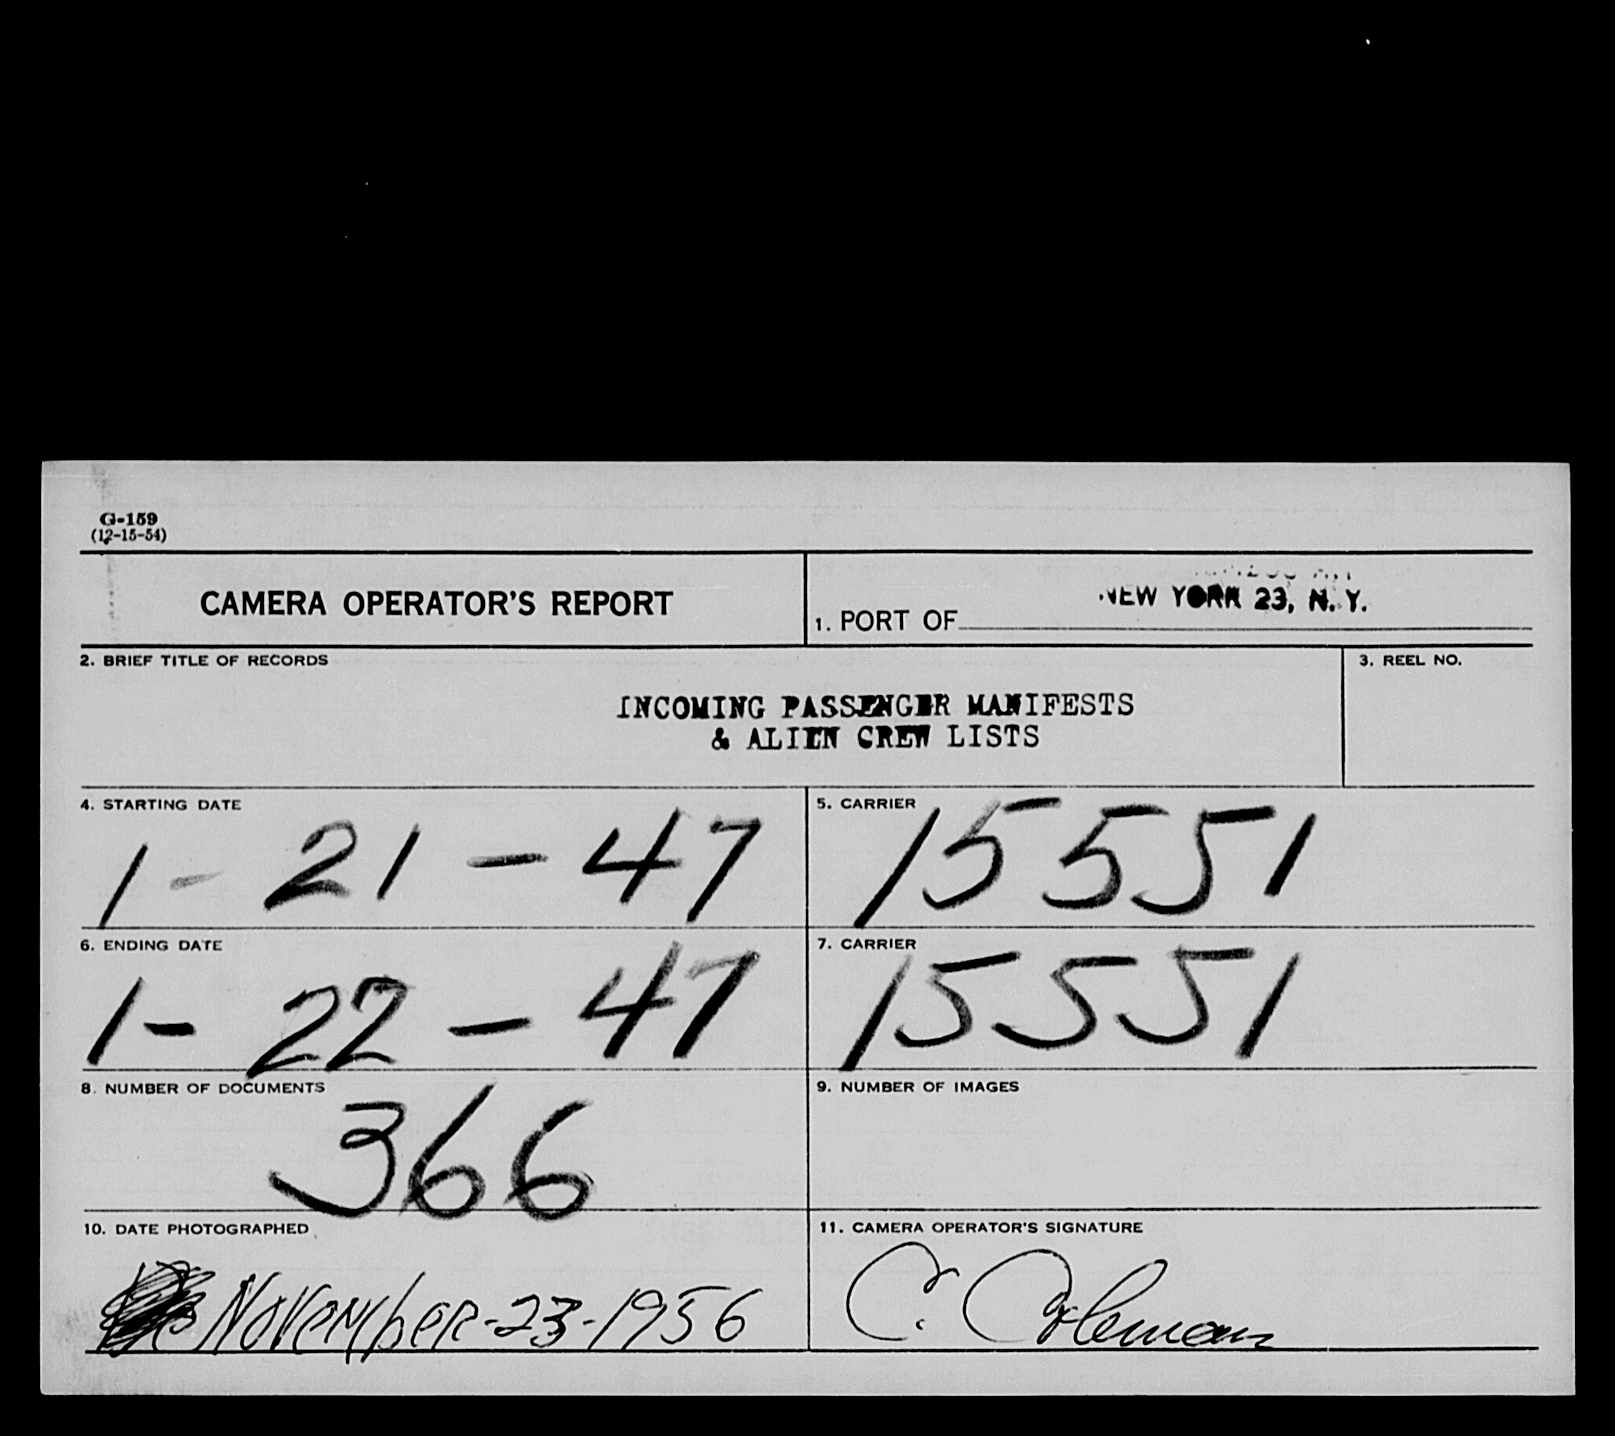 G-159
(12-15-54)
CAMERA OPERATOR'S REPORT
1. PORT OF NEW YORK 23, N. Y.
2. BRIEF TITLE OF RECORDS
3. REEL NO.
INCOMING PASSENGER MANIFESTS
& ALIEN CREW LISTS
4. STARTING DATE
1-21-47
5. CARRIER
15551
6. ENDING DATE
1-22-47
7. CARRIER
15551
8. NUMBER OF DOCUMENTS
366
9. NUMBER OF IMAGES
10. DATE PHOTOGRAPHED
November-23-1956
11. CAMERA OPERATOR'S SIGNATURE
C. Coleman